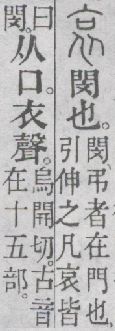 哀閔也。閔、弔者在門也
引伸之凡哀皆
曰
閔。从口。衣聲。烏開切。古音
在十五部。